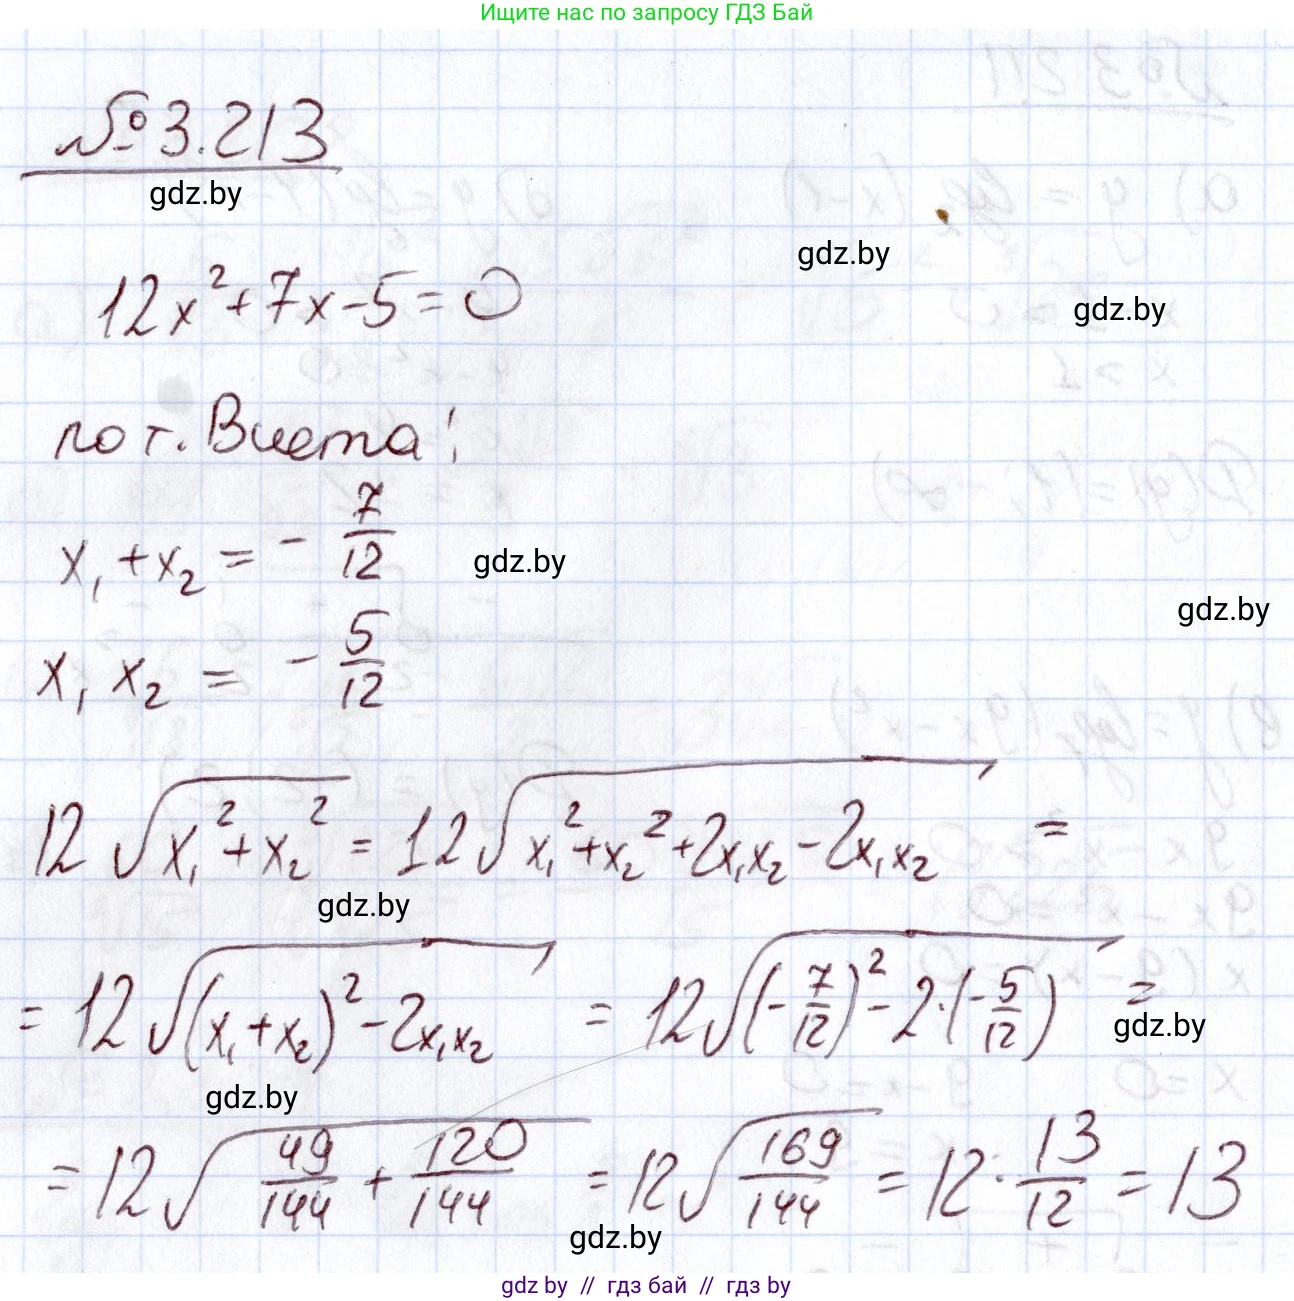 Ищите нас по запросу ГДЗ Бай
№ 3.213
gdz.by
gdz.by
gdz.by
12x² + 7x - 5 = 0
по т. Виета:
x₁ + x₂ = - 7/12
gdz.by
gdz.by
x₁ x₂ = - 5/12
12 √(x₁² + x₂²) = 12 √(x₁² + x₂² + 2x₁x₂ - 2x₁x₂) =
gdz.by
= 12 √((x₁ + x₂)² - 2x₁x₂) = 12 √((- 7/12)² - 2·(- 5/12)) =
gdz.by
gdz.by
= 12 √(49/144 + 120/144) = 12 √(169/144) = 12 · 13/12 = 13
gdz.by
gdz.by // гдз бай // гдз by